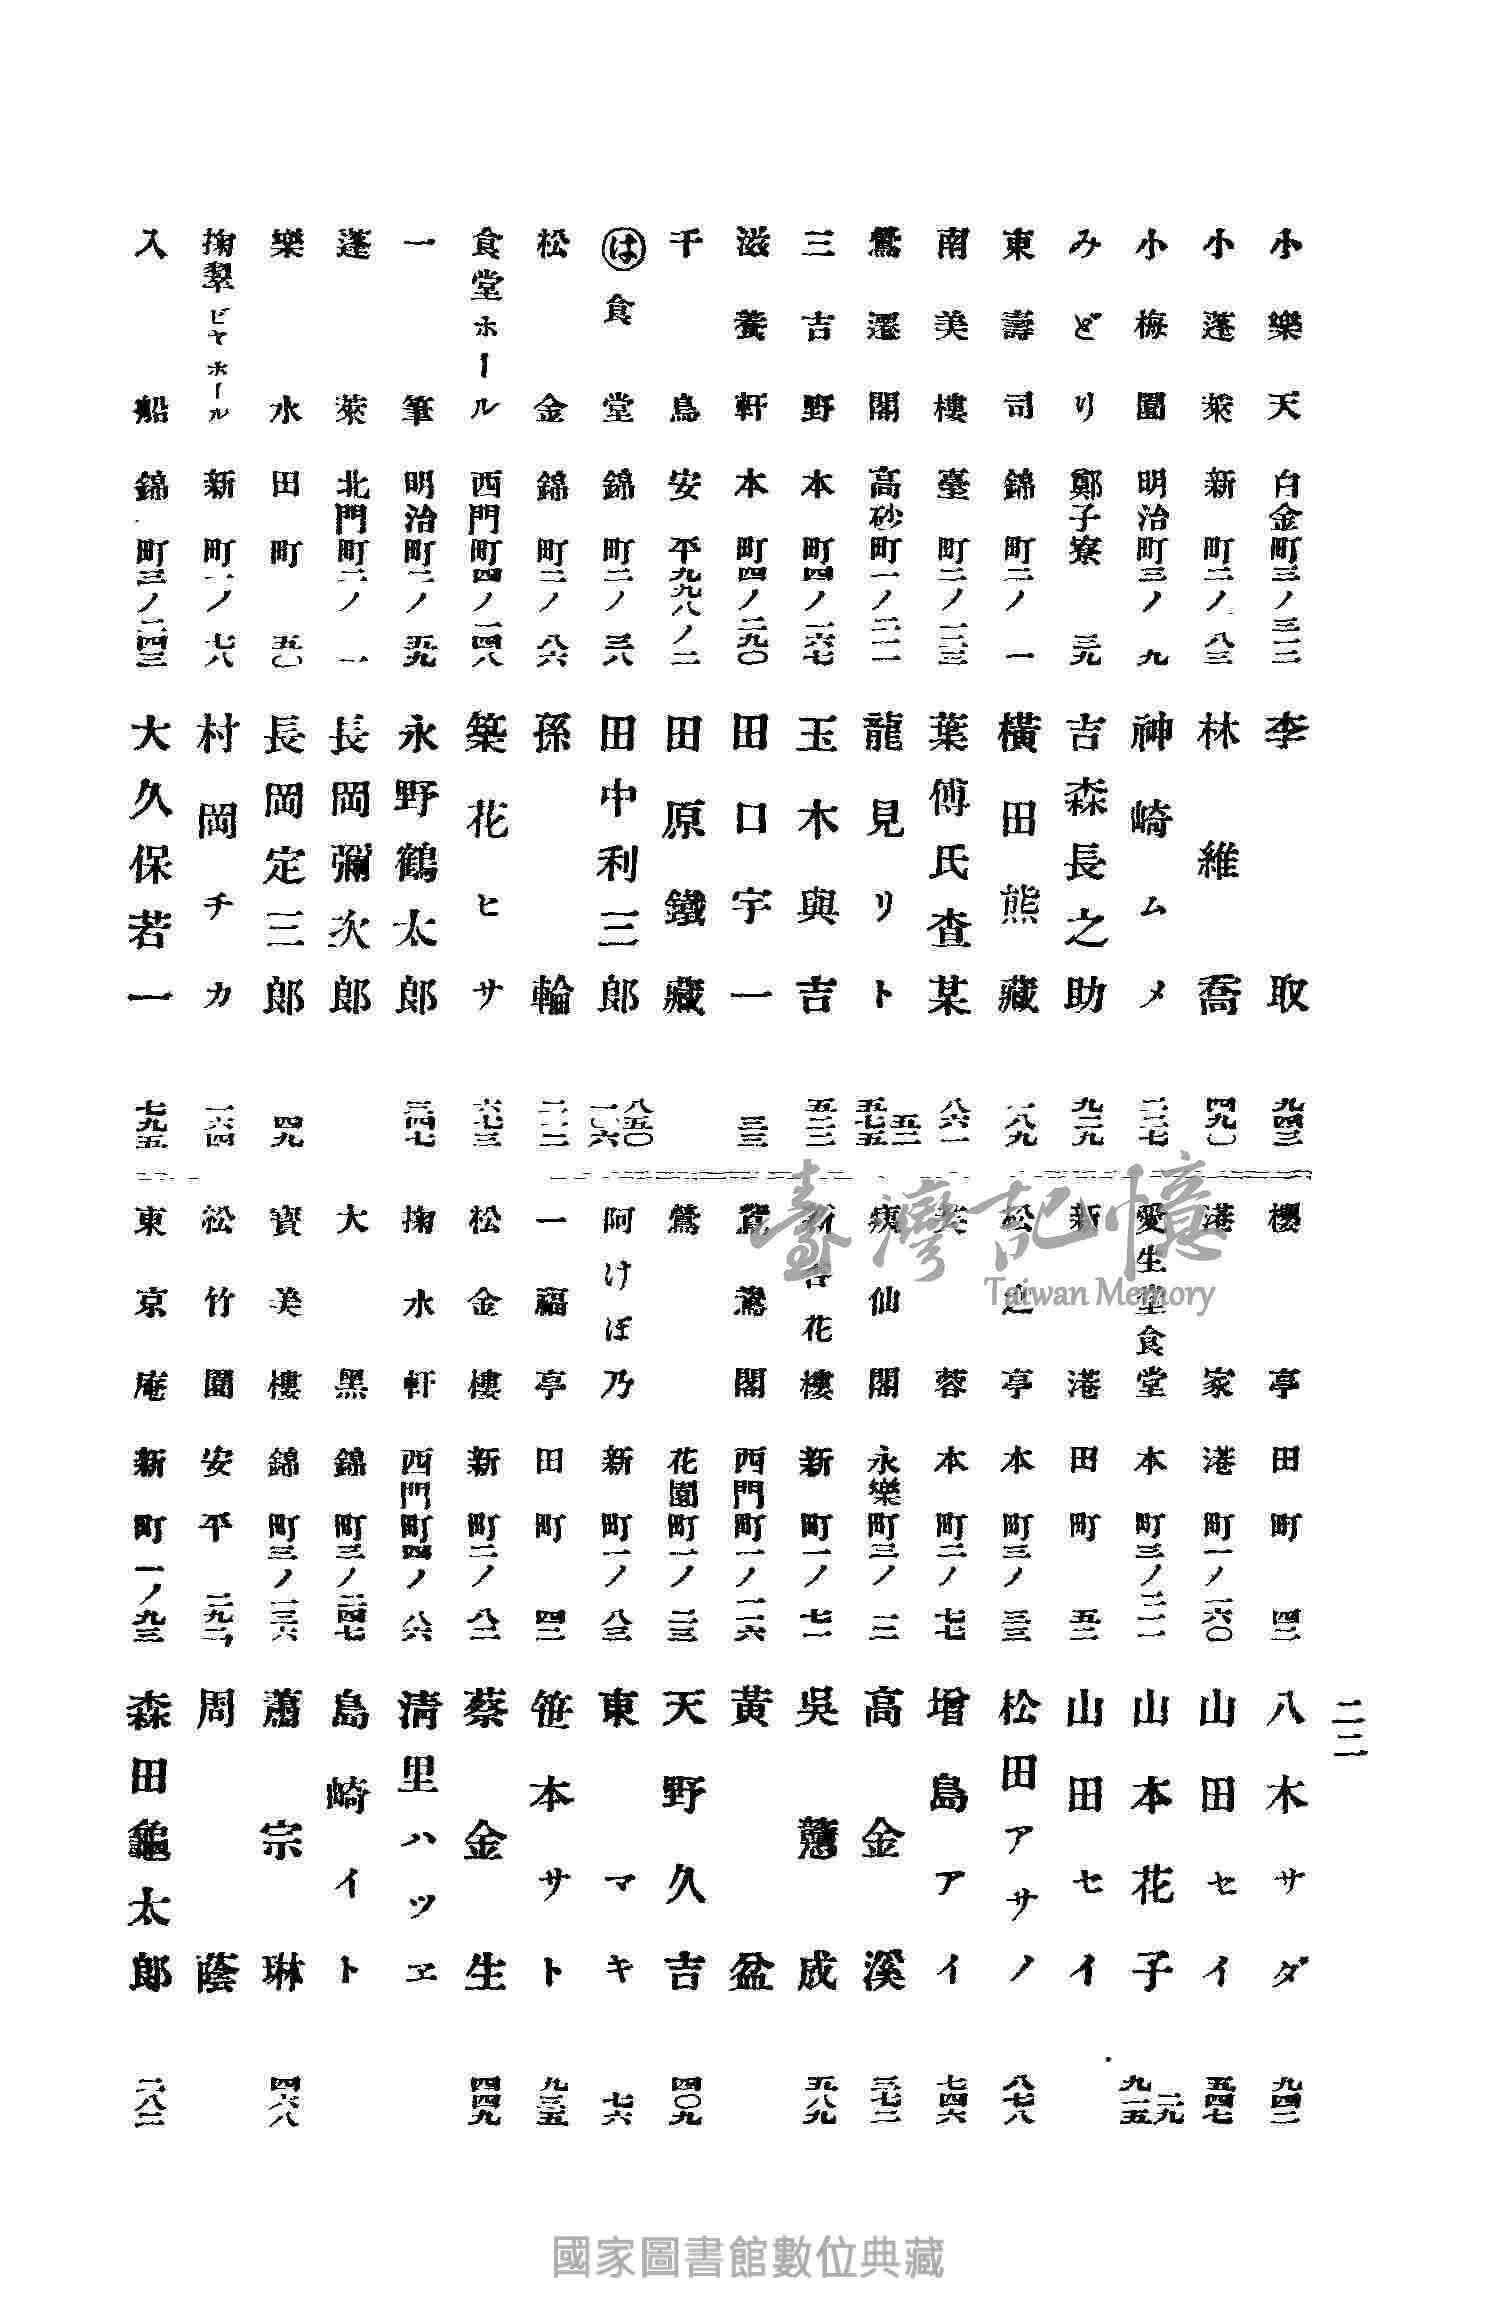 二二
小樂天 白金町三ノ三一二 李取 九四三
小蓬萊 新町二ノ八三 林維喬 四九〇
小梅園 明治町三ノ九 神崎ムメ 二二七
みどり 鄭子寮三九 吉森長之助 九二九
東壽司 錦町二ノ一 横田熊藏 一八九
南美樓 臺町二ノ一二三 葉傅氏査某 八六一
鶯遷閣 高砂町一ノ二一一 龍見リト 五二 五七五
三吉野 本町四ノ一六七 玉木與吉 五二二
滋養軒 本町四ノ二九〇 田口宇一 三三
千鳥 安平九九八ノ二 田原鐵藏
は食堂 錦町二ノ三八 田中利三郎 八五〇 一〇六
松金 錦町二ノ八六 孫輪
食堂ホール 西門町四ノ一四八 築花ヒサ 六七三
一筆 明治町二ノ五九 永野鶴太郎 三四七
蓬萊 北門町二ノ一 長岡彌次郎
樂水 田町五〇 長岡定三郎 四九
掬翠ビヤホール 新町一ノ七八 村岡チカ 一六四
入船 錦町三ノ二四三 大久保若一 七九五
櫻亭 田町四二 八木サダ 九四二
港家 港町一ノ一六〇 山田セイ 五四七
愛生堂食堂 本町三ノ二一一 山本花子 二九 九一五
新港 田町五二 山田セイ
松亭 本町三ノ三三 松田アサノ 八七八
蓉 本町二ノ七七 增島アイ 七四六
仙閣 永樂町三ノ一二 高金溪 三七二
杏花樓 新町一ノ七一 吳成 五八九
鴛鴦閣 西門町一ノ一一六 黃盆
鶯 花園町一ノ二三 天野久吉 四〇九
阿けぼ乃 新町一ノ八三 東マキ 七六
一福亭 田町四二 笹本サト 九三五
松金樓 新町二ノ八二 蔡金生 四四九
掬水軒 西門町四ノ八六 清里ハツヱ
大黑 錦町三ノ二四七 島崎イト
寶美樓 錦町三ノ一三六 蕭宗琳 四六八
松竹園 安平 周蔭
東京庵 新町一ノ九三 森田龜太郎 二八二
臺灣記憶
Taiwan Memory
國家圖書館數位典藏